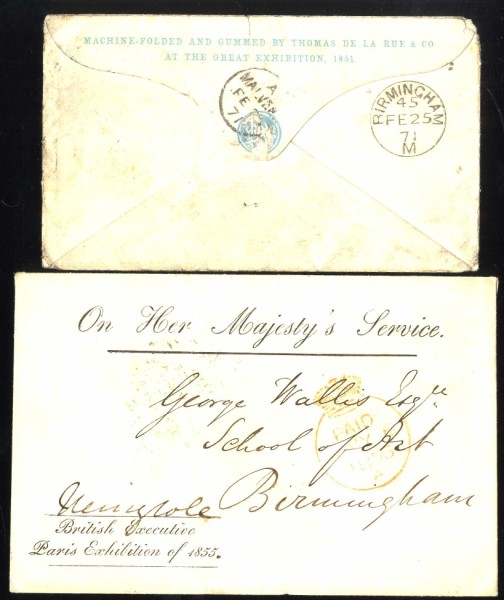 MACHINE-FOLDED AND GUMMED BY THOMAS DE LA RUE & CO
AT THE GREAT EXHIBITION, 1851
A
FE
71
BIRMINGHAM
45
FE 25
71
M
On Her Majesty's Service.
George Wallis Esqre
School of Art
Birmingham
PAID
British Executive
Paris Exhibition of 1855.